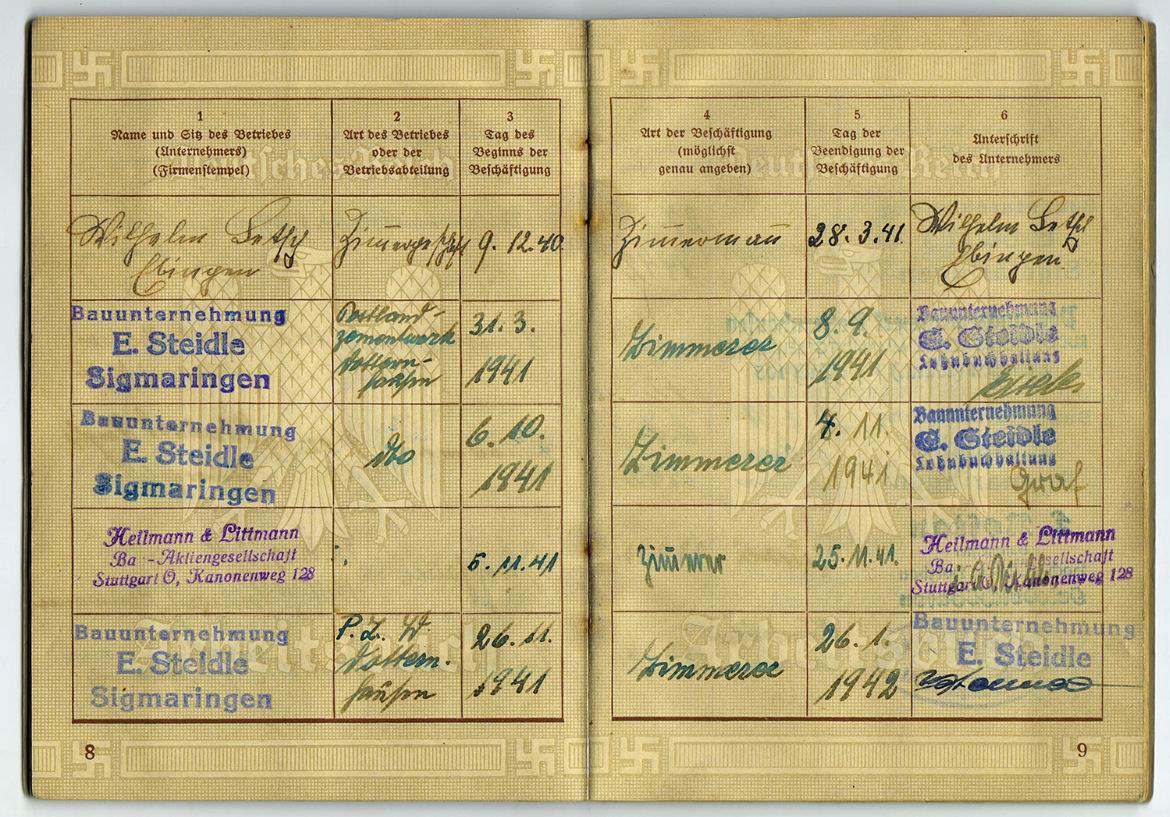 1
Name und Sitz des Betriebes
(Unternehmers)
(Firmenstempel)
2
Art des Betriebes
oder der
Betriebsabteilung
3
Tag des
Beginns der
Beschäftigung
4
Art der Beschäftigung
(möglichst
genau angeben)
5
Tag der
Beendigung der
Beschäftigung
6
Unterschrift
des Unternehmers
Wilhelm
Ebingen
9. 12. 40.
Zimmermann
28. 3. 41.
Wilhelm
Ebingen
Bauunternehmung
E. Steidle
Sigmaringen
Portland-
zementwerk
Dottern-
hausen
31. 3.
1941
Zimmerer
8. 9.
1941
Bauunternehmung
E. Steidle
Lohnbuchhaltung
Bauunternehmung
E. Steidle
Sigmaringen
dto
6. 10.
1941
Zimmerer
4. 11.
1941
Bauunternehmung
E. Steidle
Lohnbuchhaltung
Graf
Heilmann & Littmann
Ba - Aktiengesellschaft
Stuttgart O, Kanonenweg 128
5. 11. 41
Zimmerer
25. 11. 41.
Heilmann & Littmann
Ba gesellschaft
Stuttgart O, Kanonenweg 128
Bauunternehmung
E. Steidle
Sigmaringen
P. Z. W.
Dottern-
hausen
26. 11.
1941
Zimmerer
26. 1.
1942
Bauunternehmung
E. Steidle
8
9
Deutsches Reich
Deutsches Reich
Arbeitsbuch
Arbeitsbuch